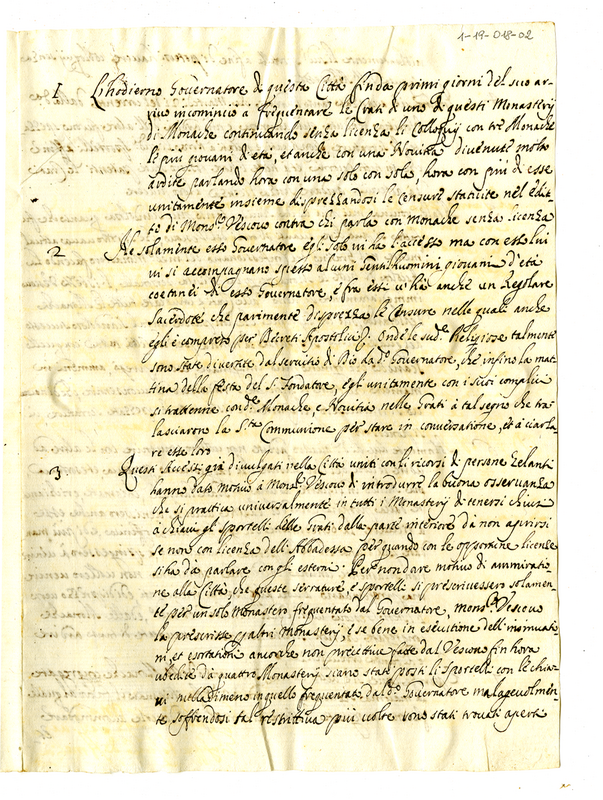 1-19-018-02
1 L'hodierno Governatore di questa Città fin da primi giorni del suo ar-
rivo incominciò à frequentare le Grati di uno di questi Monasterij
di Monache continuando senza licenza li Colloquij con trè Monache
le più giovani di età, et anche con una Novitia divenute molto
ardite parlando hora con una solo con sola, hora con più di esse
unitamente insieme disprezzandosi le Censure statuite nel edit-
to di Mons.r Vescovo contra chi parla con monache senza licenza
2 Ne solamente esso Governatore egli solo vi hà l'accesso ma con esso lui
vi si accompagnano spesso alcuni Gentilhuomini giovani d'età
coetanei di esso Governatore, e frà essi v'hà anche un Regolare
Sacerdote che parimente disprezza le Censure nelle quali anche
egli è compreso per Decreti Apostolici. Onde le sud.e Religiose talmente
sono state divertite dal servitio di Dio da d.o Governatore, che infino la mat-
tina della festa del S. Fondatore, egli unitamente con i suoi complici
si trattenne con d.e Monache e Novitia nelle Grati à tal segno che tra-
lasciarono la S.ta Communione per stare in conversatione, et à ciarla-
re esse loro
3 Questi accessi già divulgati nella Città uniti con li ricorsi di persone Zelanti
hanno dato motivo à Mons.r Vescovo di introdurre la buona osservanza
che si pratica universalmente in tutti i Monasterij di tenersi chiusi
à chiave gl sportelli delle Grati dalla parte interiore da non aprirsi
se non con licenza dell'Abbadessa per quando con le opportune licenze
si ha da parlare con gli esterni. Per non dare motivo di ammiratio-
ne alla Città, che queste serrature, e sportelli si prescrivessero solamen-
te per un solo Monastero frequentato dal Governatore, Mons.r Vescovo
la prescrisse p altri Monasterij, e se bene in esecutione dell'insinuatio-
ni, et esortationi ancorche non precettive fatte dal Vescovo fin hora
da quattro Monasterij siano stati posti li sportelli con le chia-
vi nulladimeno in quello frequentato dal d.o Governatore malagevolmen-
te soffrendosi tal restrittiva più volte sono stati trovati aperti